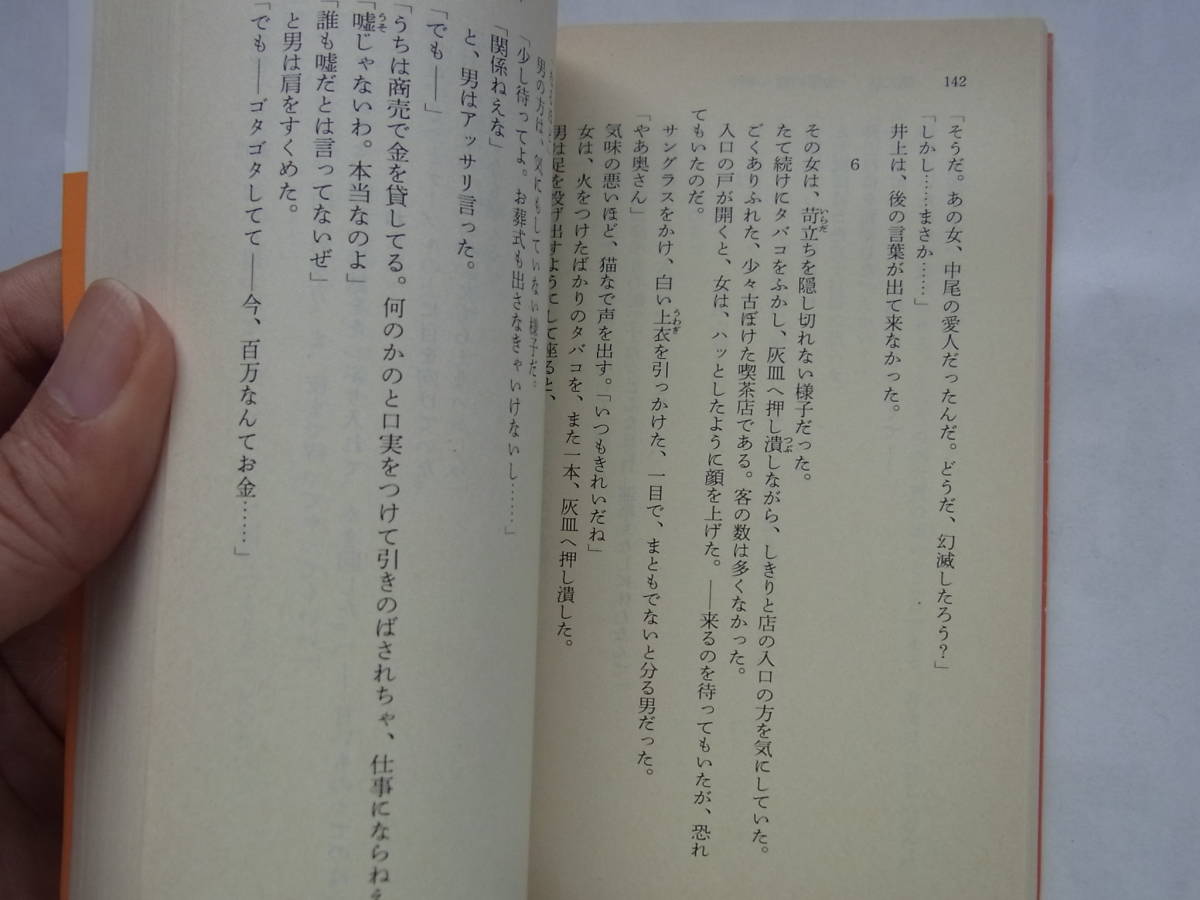 142
「そうだ。あの女、中尾の愛人だったんだ。どうだ、幻滅したろう？」
「しかし……まさか……」
井上は、後の言葉が出て来なかった。
6
その女は、苛立ちを隠し切れない様子だった。
たて続けにタバコをふかし、灰皿へ押し潰しながら、しきりと店の入口の方を気にしていた。
ごくありふれた、少々古ぼけた喫茶店である。客の数は多くなかった。
入口の戸が開くと、女は、ハッとしたように顔を上げた。――来るのを待ってもいたが、恐れ
てもいたのだ。
サングラスをかけ、白い上衣を引っかけた、一目で、まともでないと分る男だった。
「やあ奥さん」
気味の悪いほど、猫なで声を出す。「いつもきれいだね」
女は、火をつけたばかりのタバコを、また一本、灰皿へ押し潰した。
男は足を投げ出すようにして座ると、
男の方は、気にもしていない様子だ。
「少し待ってよ。お葬式も出さなきゃいけないし……」
「関係ねえな」
と、男はアッサリ言った。
「でも――」
「うちは商売で金を貸してる。何のかのと口実をつけて引きのばされちゃ、仕事にならねえ
「嘘じゃないわ。本当なのよ」
「誰も嘘だとは言ってないぜ」
と男は肩をすくめた。
「でも――ゴタゴタしてて――今、百万なんてお金……」